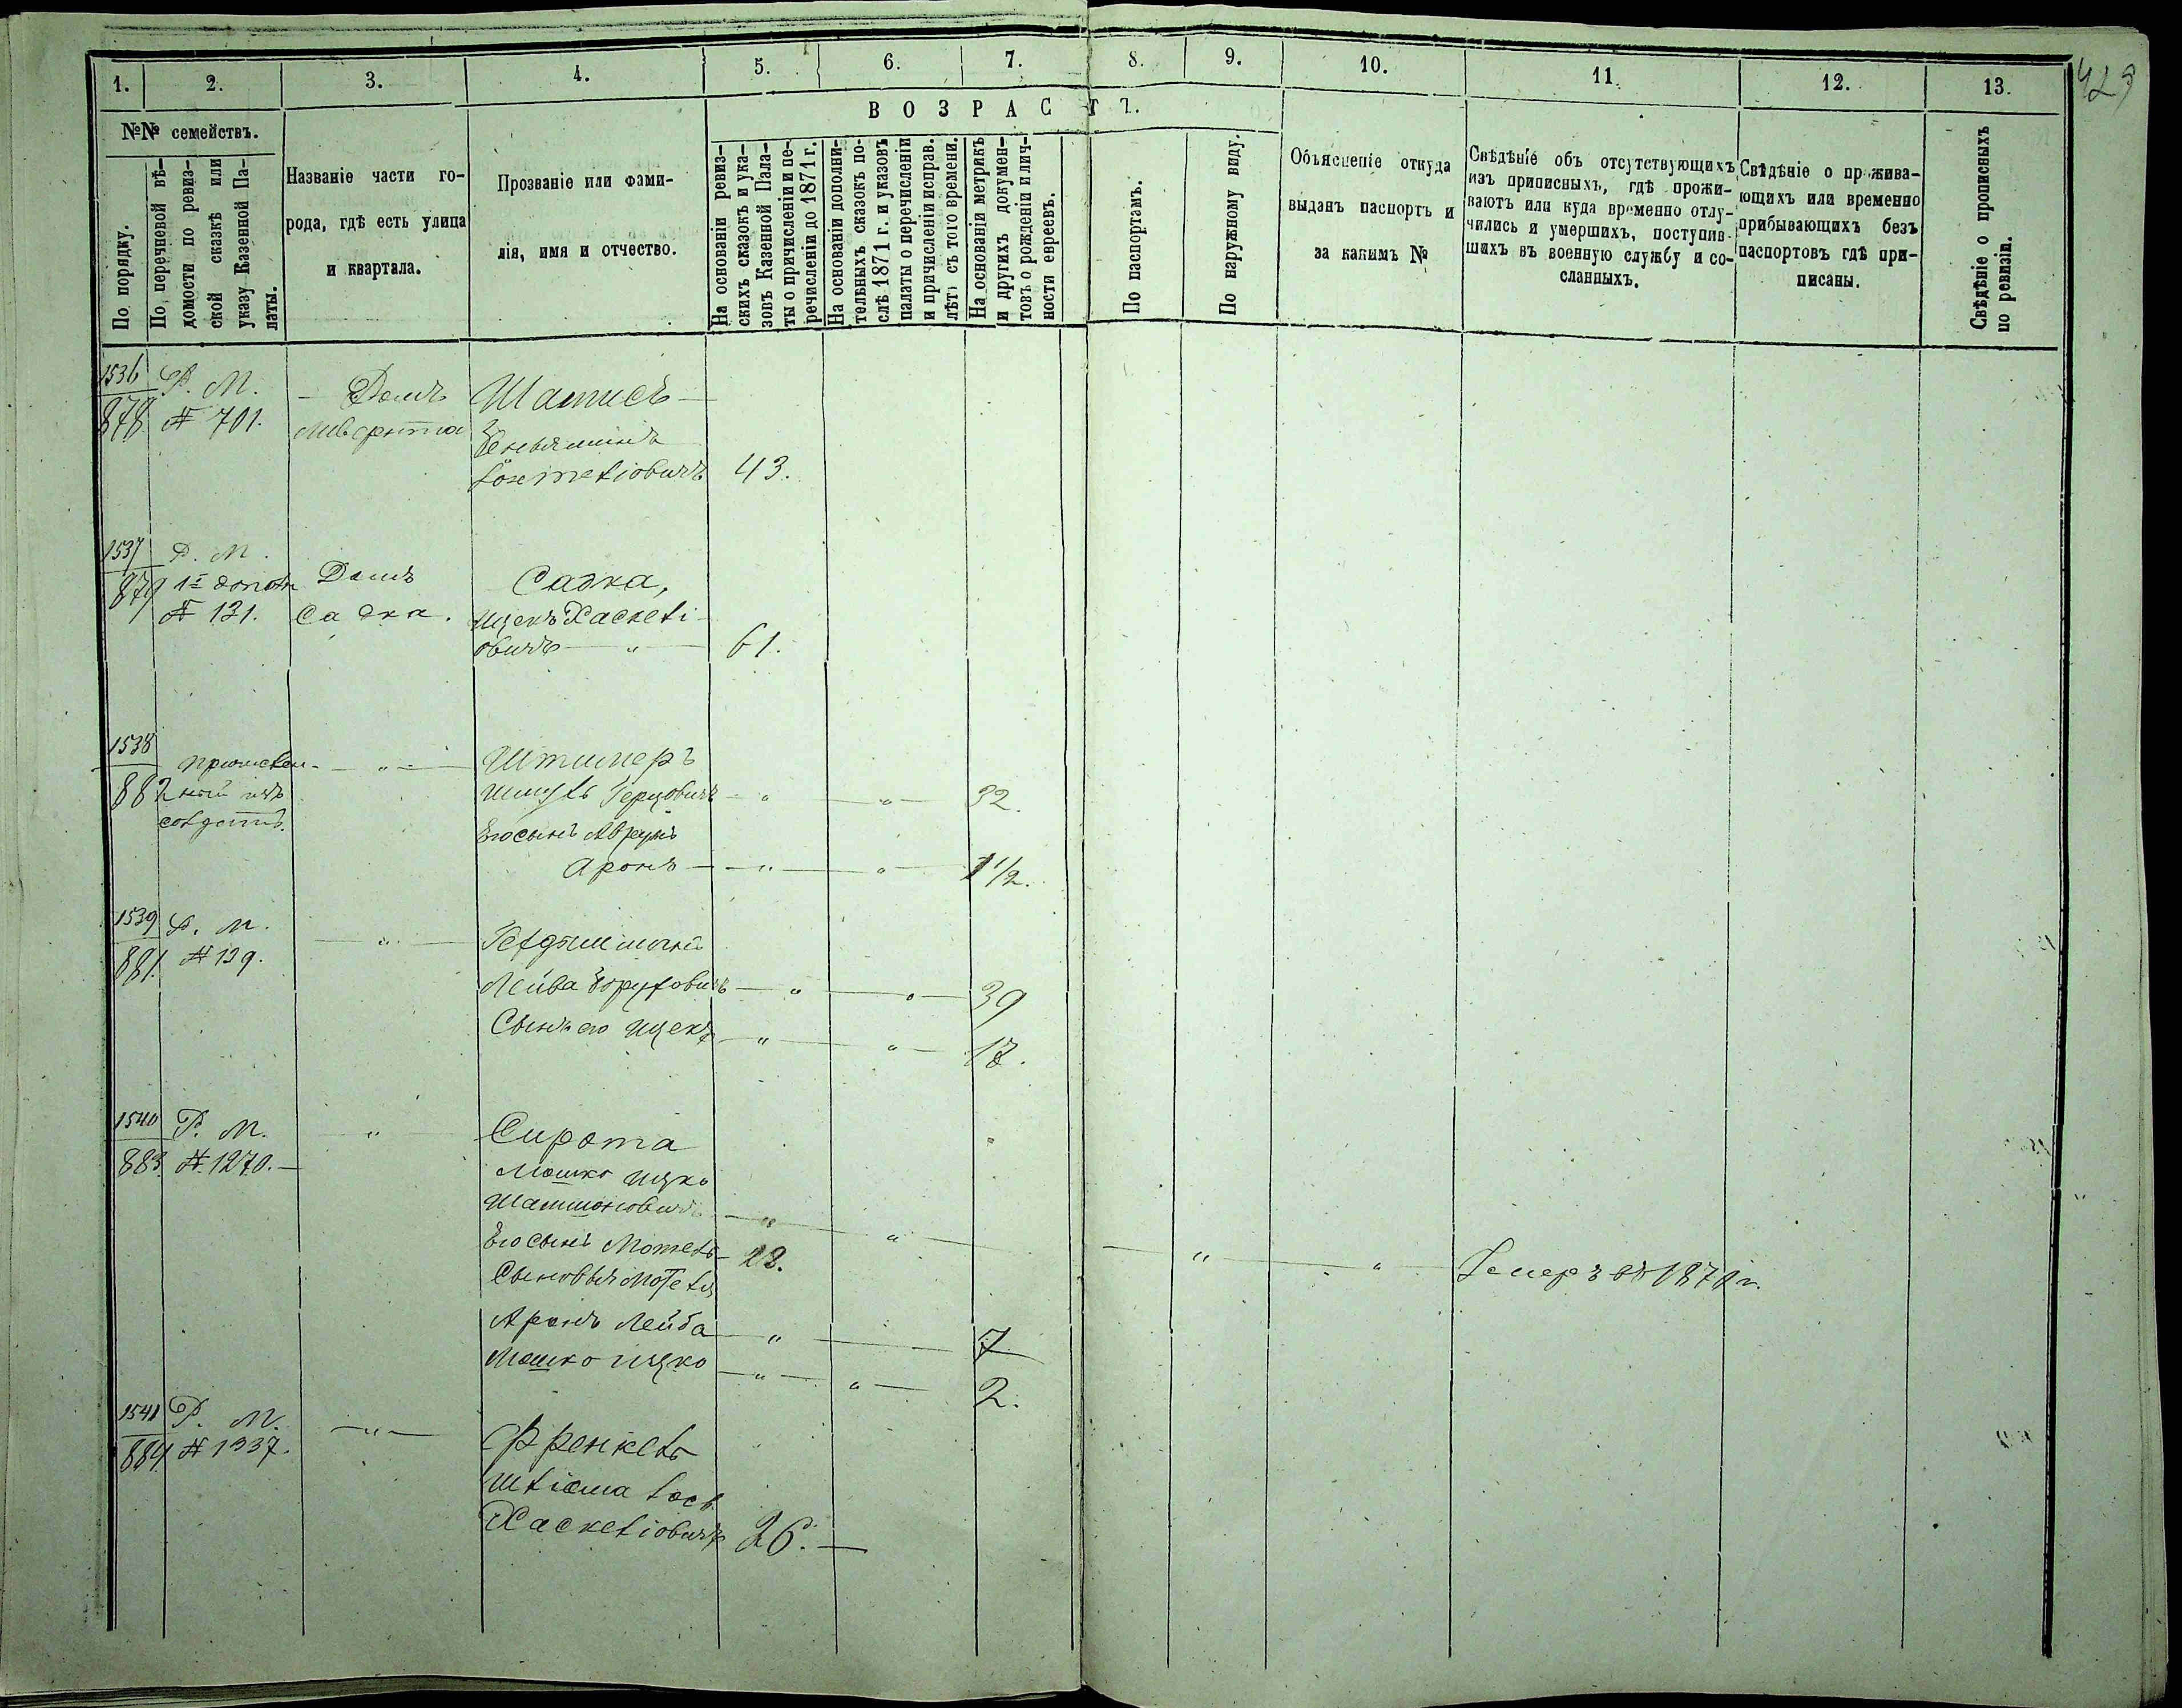 429
1. 2. 3. 4. 5. 6. 7. 8. 9. 10. 11. 12. 13.
№№ семействъ.
ВОЗРАСТЪ.
По порядку.
По перечневой вѣ-
домости по ревиз-
ской сказкѣ или
указу Казенной Па-
латы.
Названіе части го-
рода, гдѣ есть улица
и квартала.
Прозваніе или фами-
лія, имя и отчество.
На основаніи ревиз-
скихъ сказокъ и ука-
зовъ Казенной Пала-
ты о причисленіи и пе-
речисленіи до 1871 г.
На основаніи дополни-
тельныхъ сказокъ по-
слѣ 1871 г. и указовъ
палаты о перечисленіи
и причисленіи исправ.
лѣтъ съ того времени.
На основаніи метрикъ
и другихъ докумен-
товъ о рожденіи и лич-
ности евреевъ.
По паспортамъ.
По наружному виду.
Объясненіе откуда
выданъ паспортъ и
за какимъ №
Свѣдѣніе объ отсутствующихъ
изъ приписныхъ, гдѣ прожи-
ваютъ или куда временно отлу-
чились и умершихъ, поступив-
шихъ въ военную службу и со-
сланныхъ.
Свѣдѣніе о прожива-
ющихъ или временно
прибывающихъ безъ
паспортовъ гдѣ при-
писаны.
Свѣдѣніе о прописныхъ
по ревизіи.
1536 Р. М. Домъ
878 № 701.
Беньяминъ
43.
1537 Р. М.
879 1е допол Домъ Садка,
№ 131. Садка. Ицекъ Хаскелі-
овичъ — " — 61.
1538
882 — " —
Шмуль Герцовичъ — " — " — 32.
Его сынъ Аврумъ
Аронъ — " — " — 1 1/2.
1539 Р. М.
881 № 139. — " — Гелдтманъ
Лейба Борухович — " — " — 39
Сынъ его Ицекъ — " — " — 17.
1540 Р. М. " Сирота
883 № 1270. — Мошко Ицко
Шамшоновичъ — " — " —
Его сынъ Мотель — 28. — " — " —
Сыновья Мотеля
Аронъ Лейба — " — 7
Мошко Ицко — " — " — 2.
1541 Р. М. — " — Френкель
884 № 1337.
Шліома
Хаскеліовичъ 26. —